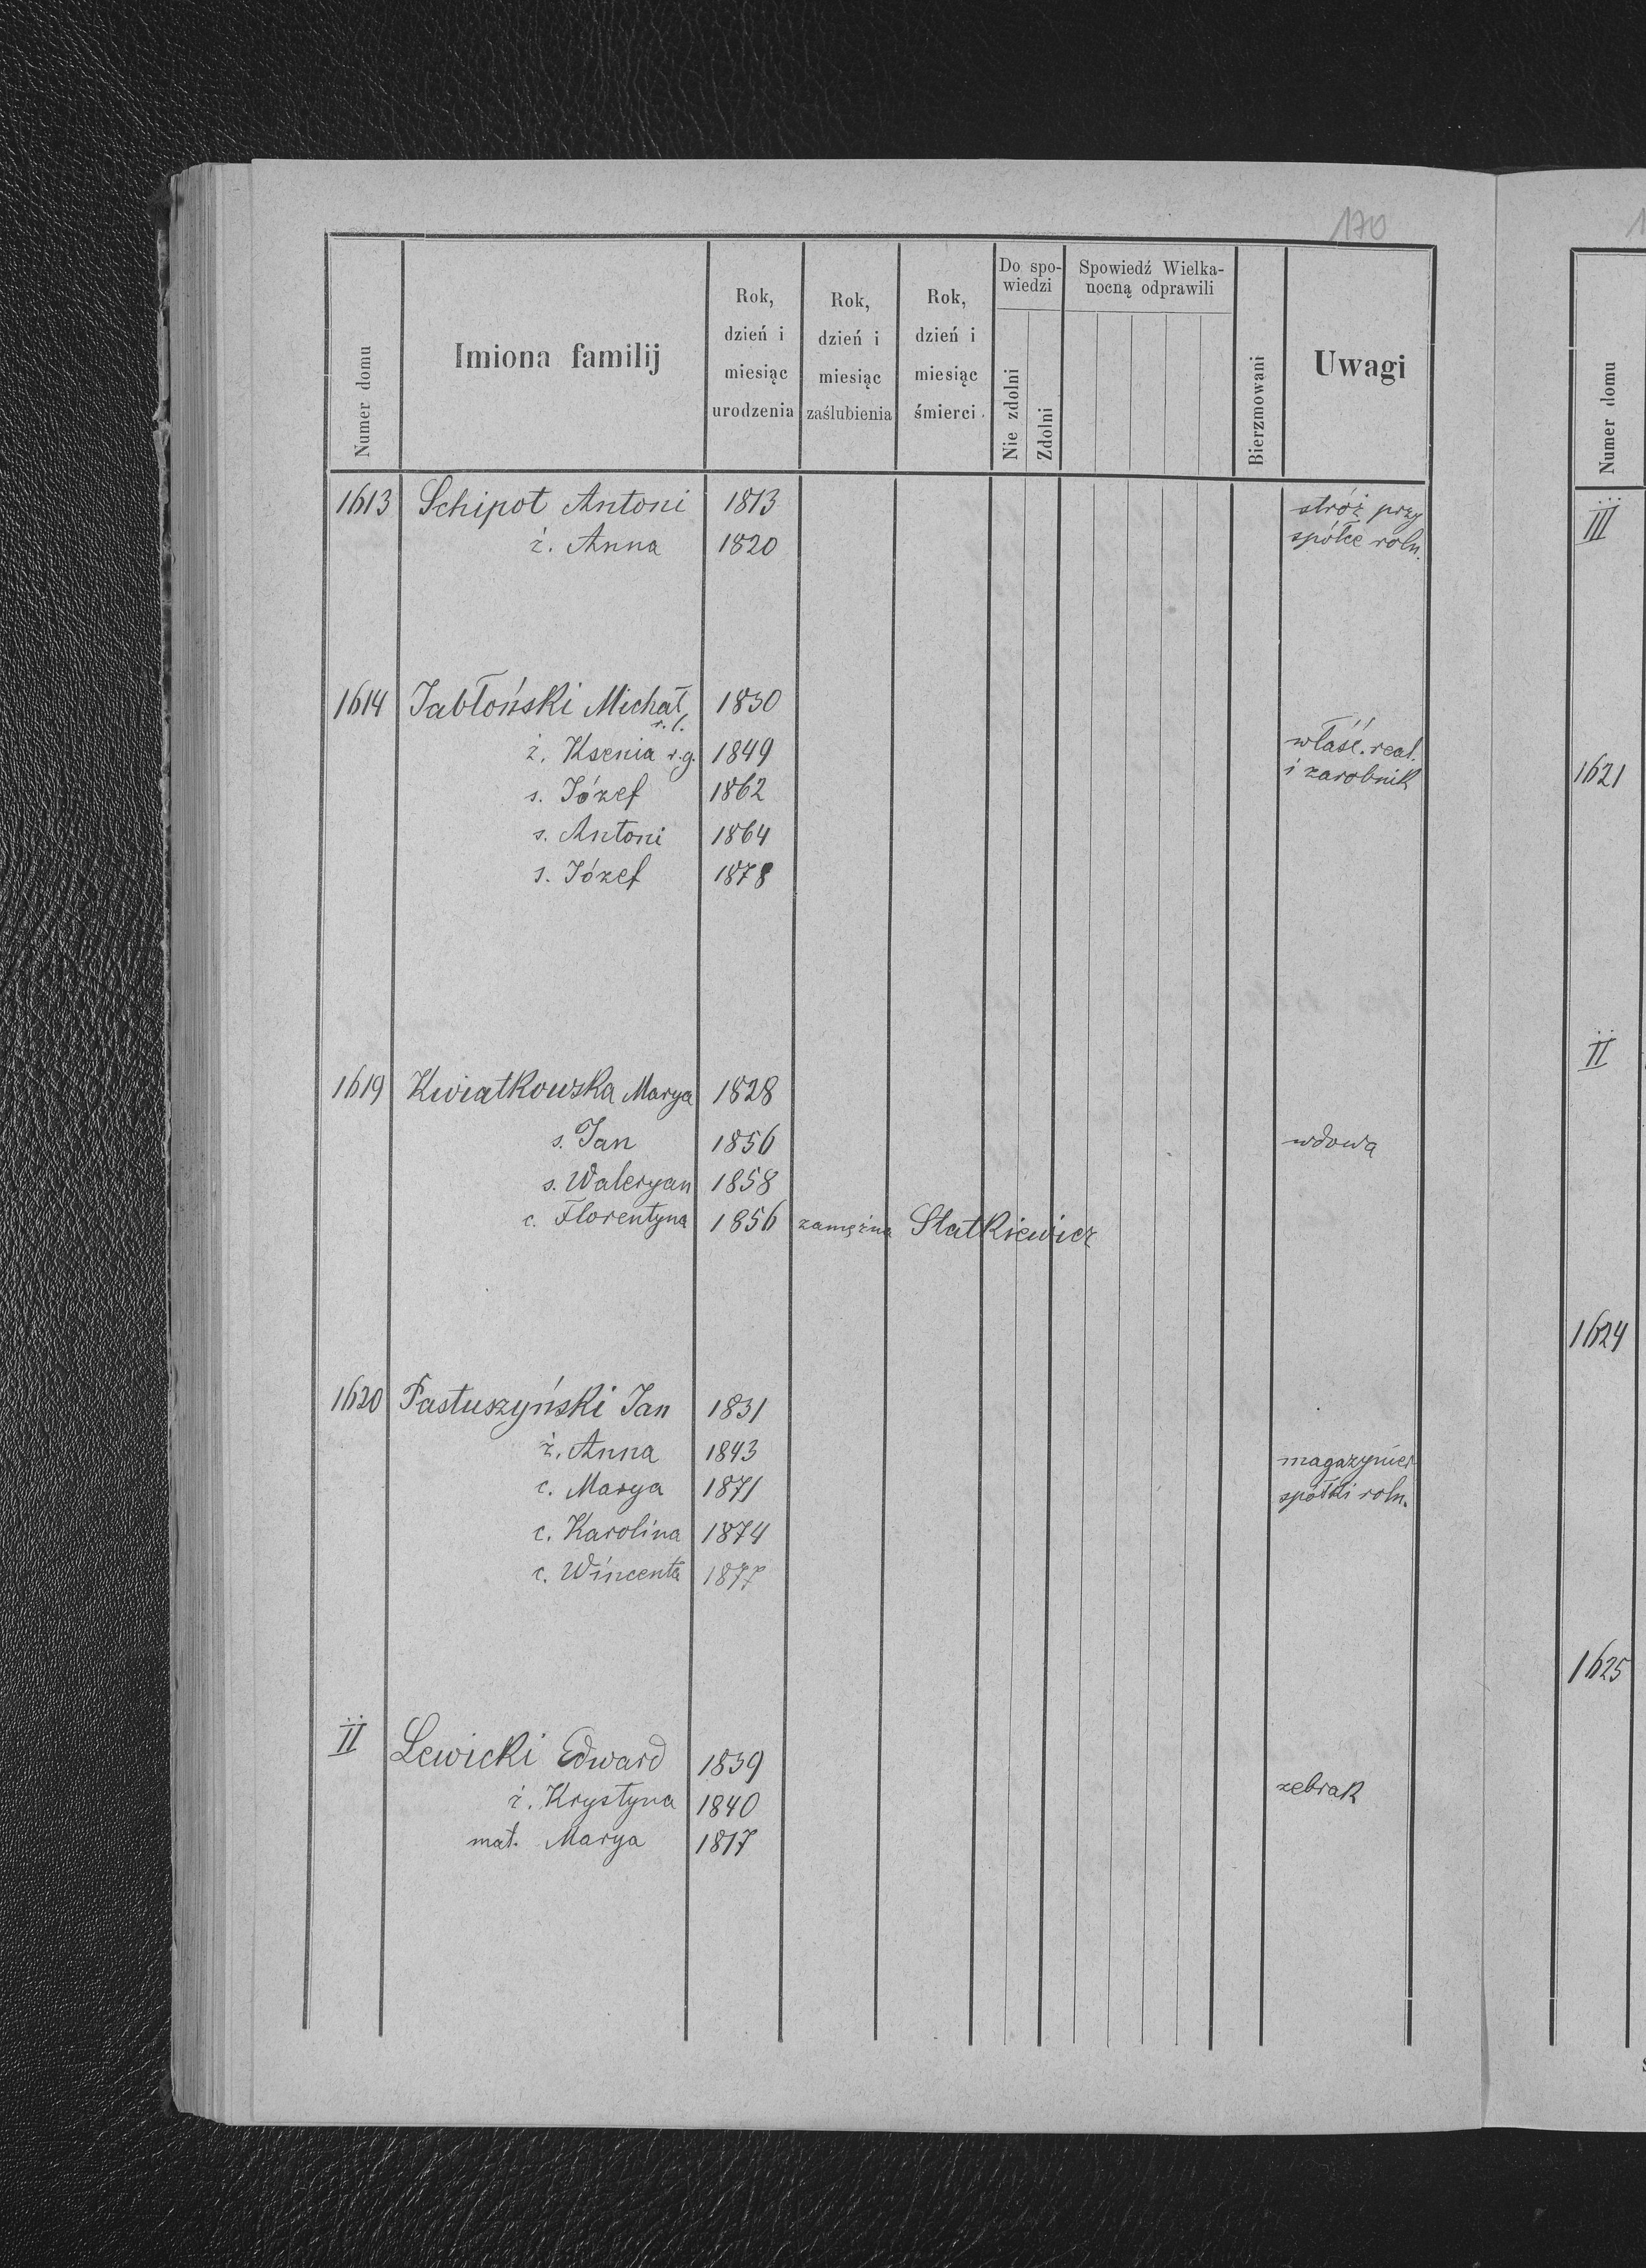 170
Numer domu
Imiona familij
Rok, dzień i miesiąc urodzenia
Rok, dzień i miesiąc zaślubienia
Rok, dzień i miesiąc śmierci.
Do spo-
wiedzi
Nie zdolni
Zdolni
Spowiedź Wielka-
nocną odprawili
Bierzmowani
Uwagi
1613 Schipot Antoni 1813 stróż przy
ż. Anna 1820 spółce roln.
1614 Jabłoński Michał 1830
r. l.
ż. Ksenia r. g. 1849 właść. real.
s. Józef 1862 i zarobnik
s. Antoni 1864
s. Józef 1878
1619 Kwiatkowska Marya 1828
s. Jan 1856 wdowa
s. Waleryan 1858
c. Florentyna 1856 zamężna Slatkiewicz
1620 Pastuszyński Jan 1831
ż. Anna 1843 magazynier
c. Marya 1871 spółki roln.
c. Karolina 1874
c. Wincenta 1877
II Lewicki Edward 1839
ż. Krystyna 1840 żebrak
mat. Marya 1817
Numer domu
III
1621
II
1624
1625